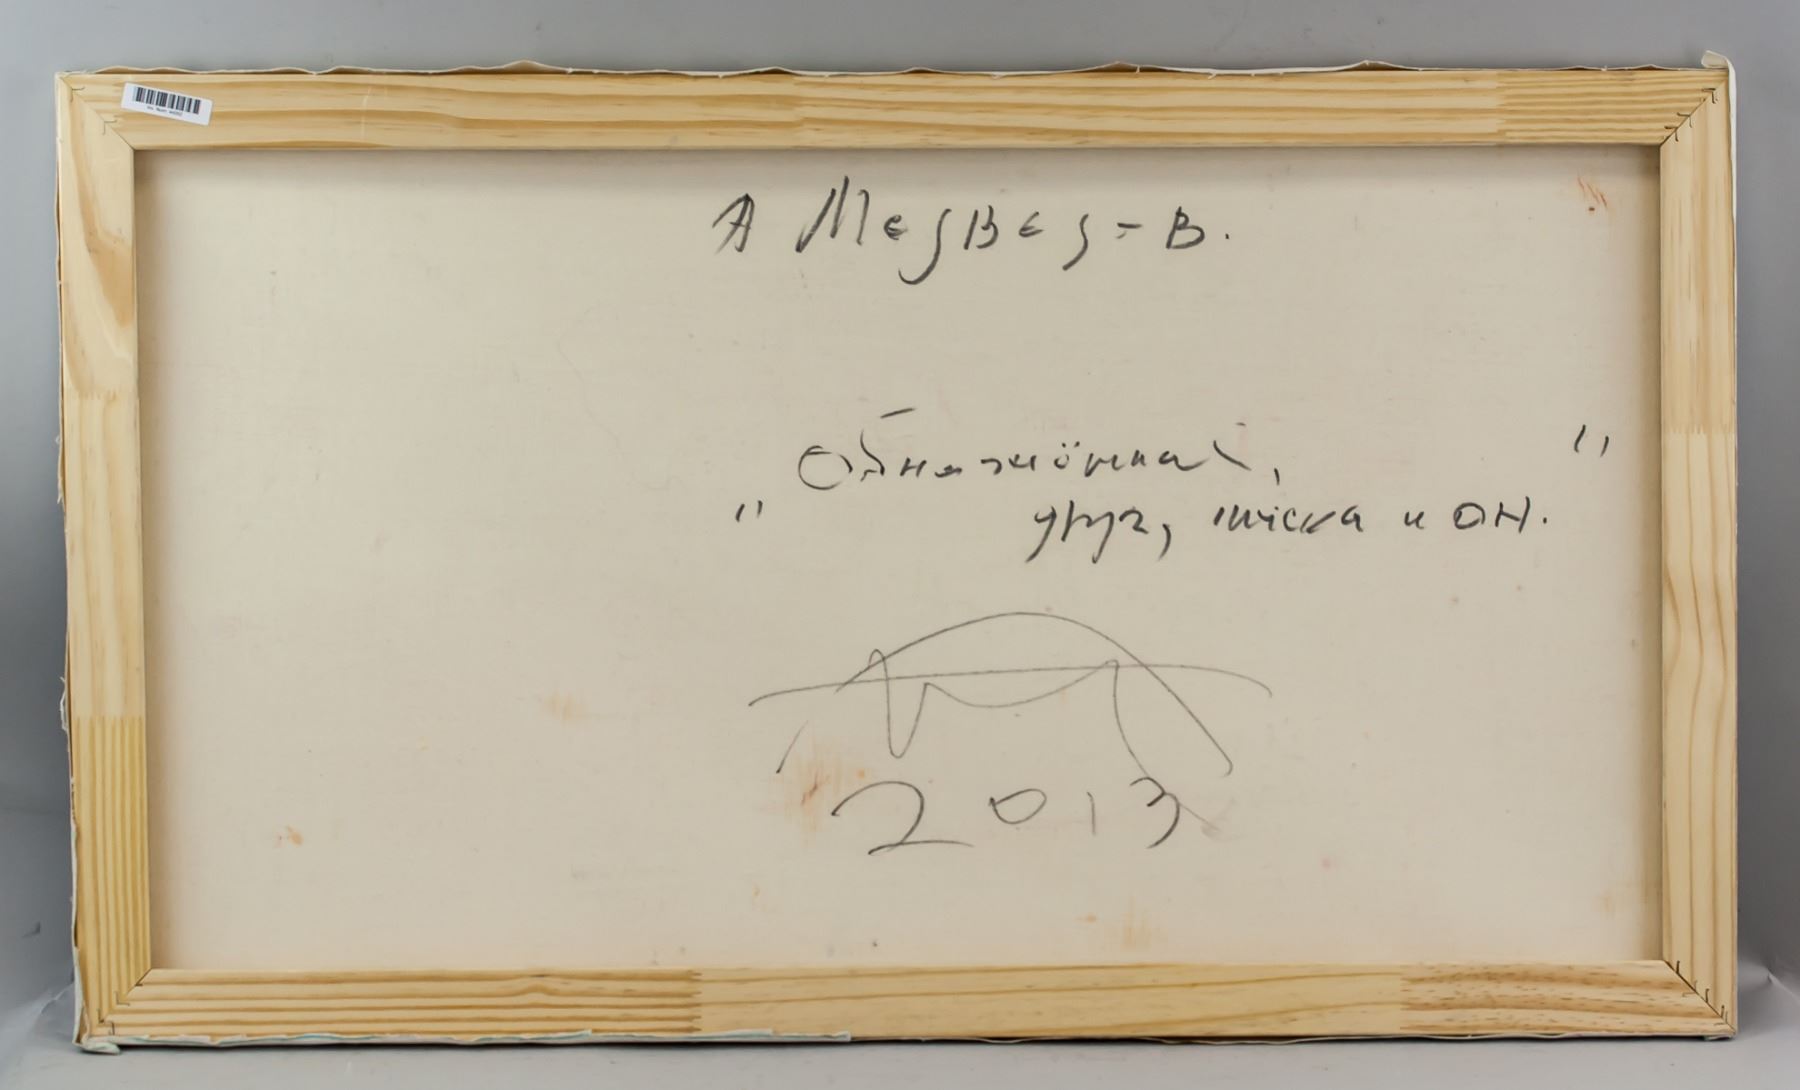 А Медвед-в.
„Обнажённая,
друг, миска и он."
2013